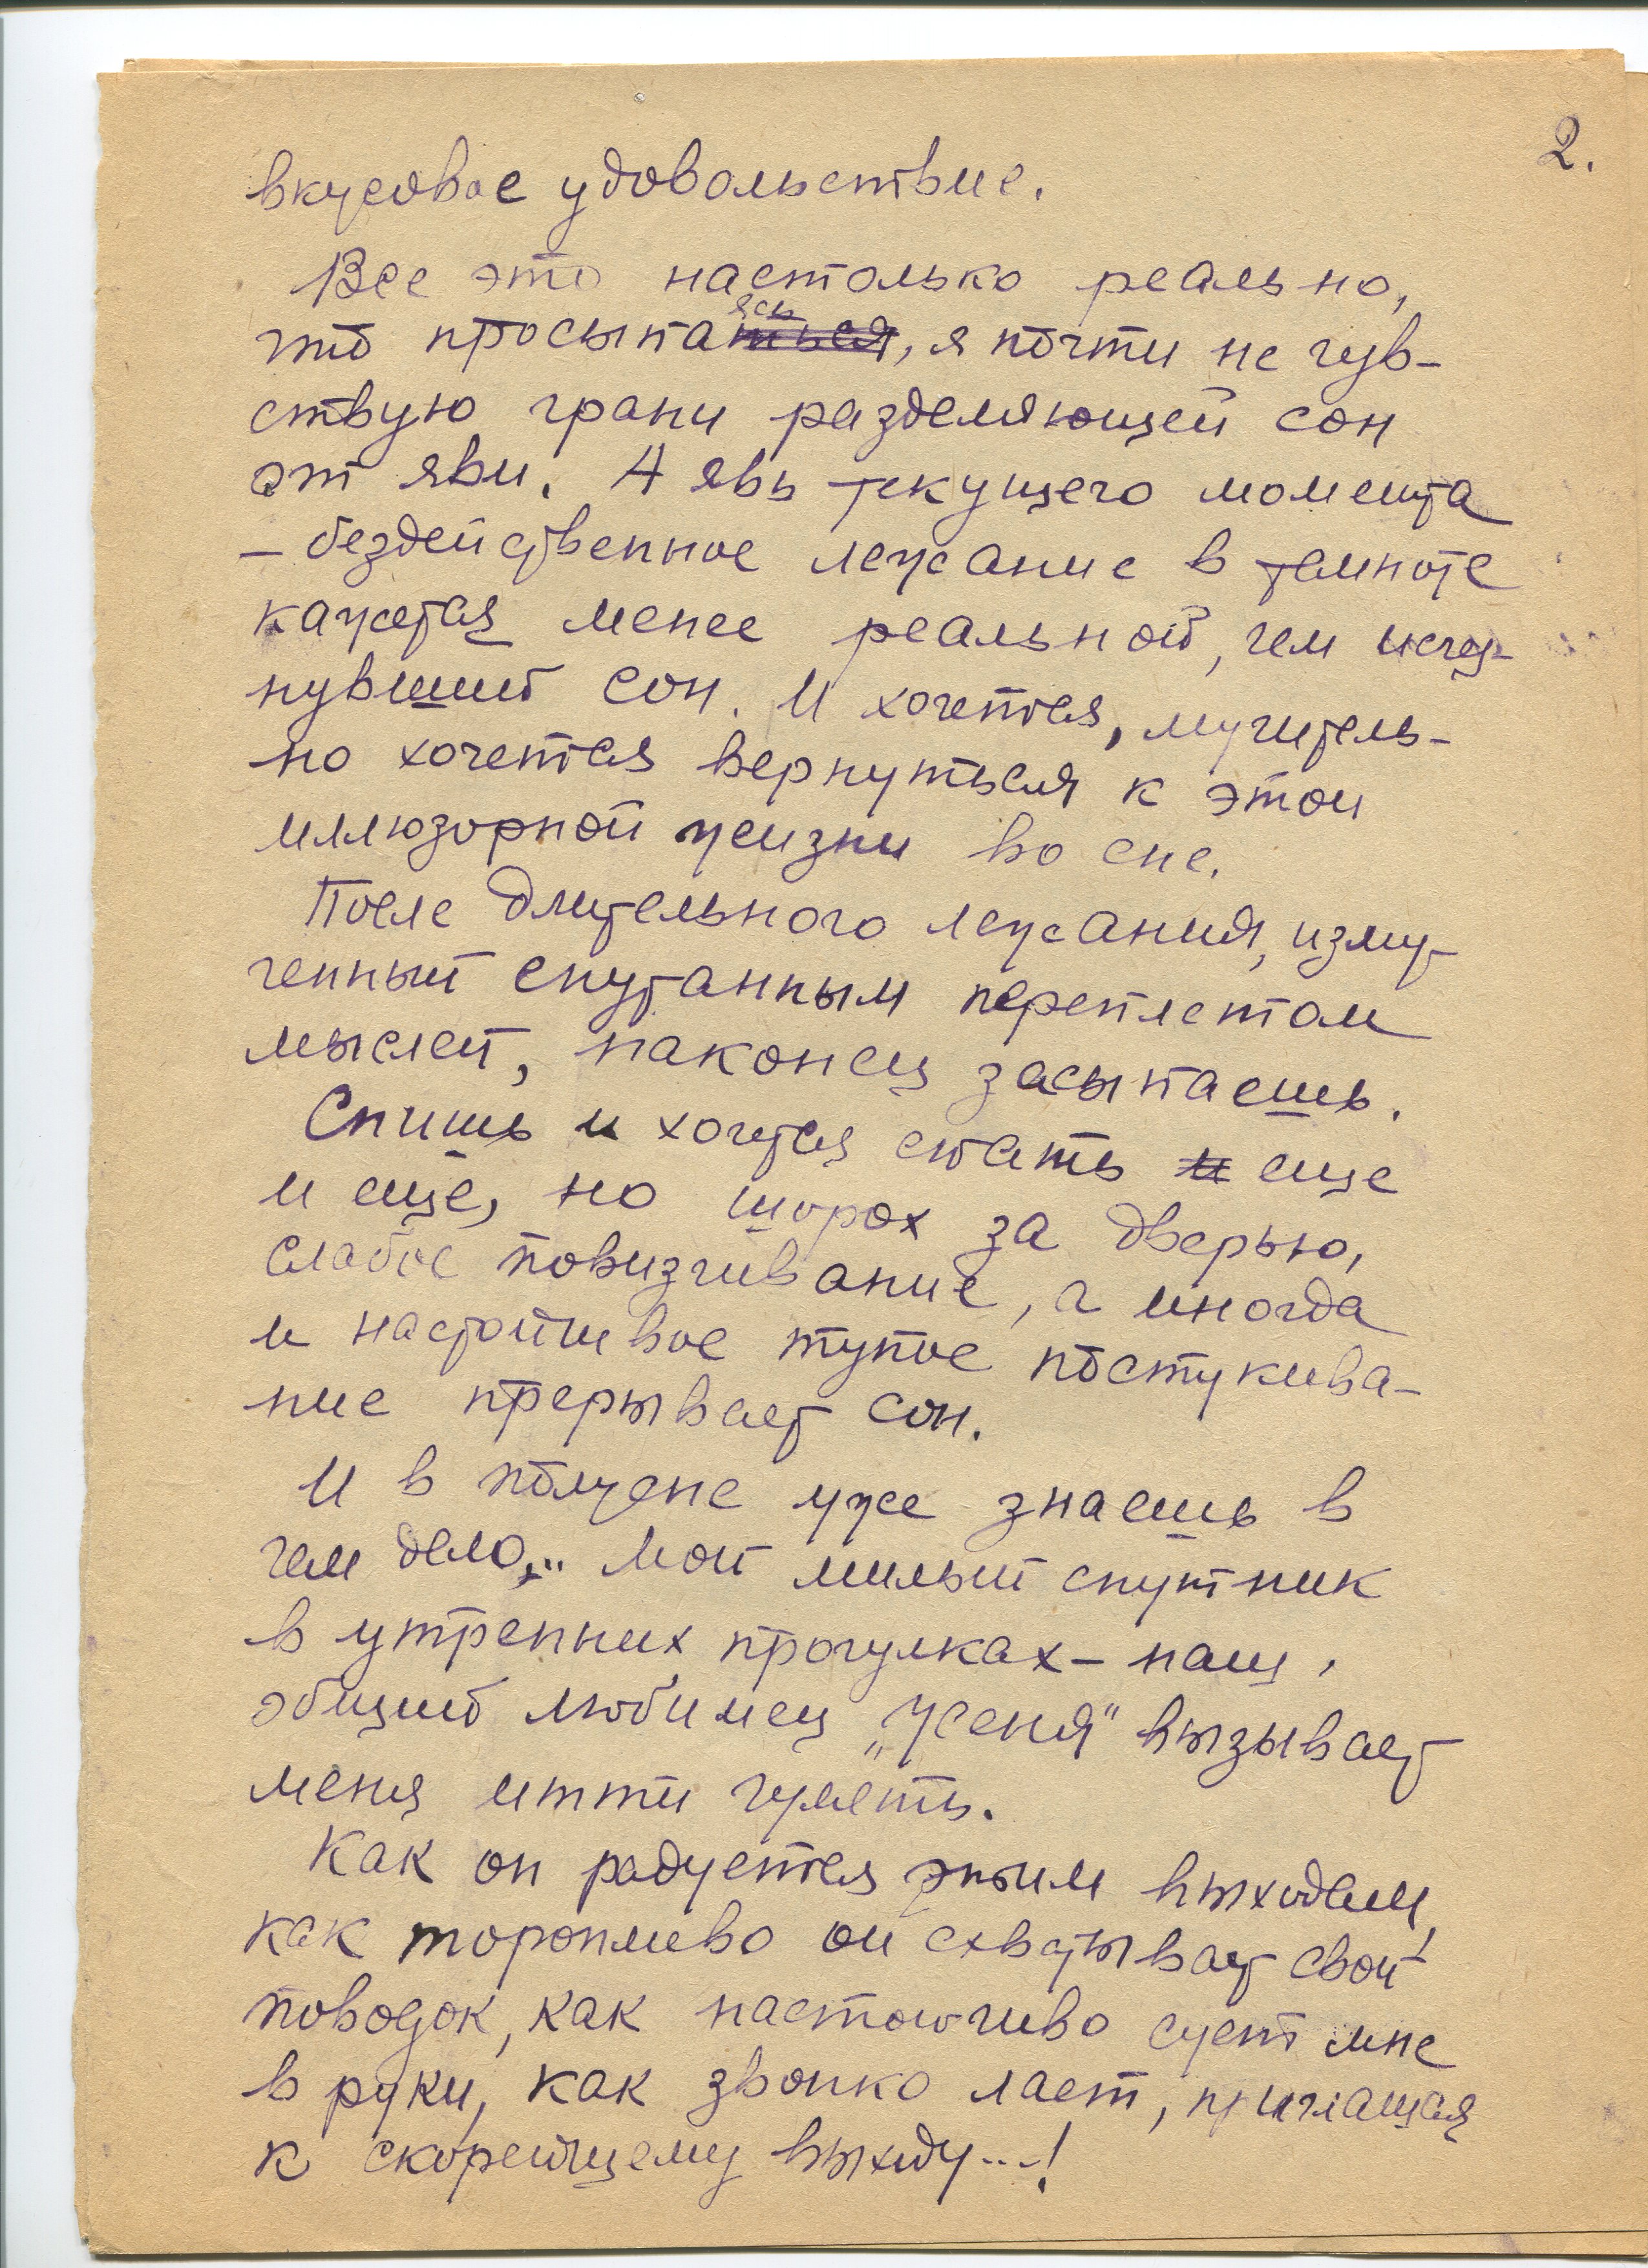 2.
вкусовое удовольствие.
Все это настолько реально,
что просыпаясь, я почти не чув-
ствую грани разделяющей сон
от яви. А явь текущего момента
— бездейственное лежание в темноте
кажется менее реальной, чем исчез-
нувший сон. И хочется, мучитель-
но хочется вернуться к этой
иллюзорной жизни во сне.
После длительного лежания, изму-
ченный спутанным переплетом
мыслей, наконец засыпаешь.
Спишь и хочется спать еще
и еще, но шорох за дверью,
слабое повизгивание, а иногда
и настойчивое тупое постукива-
ние прерывает сон.
И в полусне уже знаешь в
чем дело... мой милый спутник
в утренних прогулках — наш
общий любимец „Женя" вызывает
меня итти гулять.
Как он радуется этим выходам,
как торопливо он схватывает свой
поводок, как настойчиво сует мне
в руки, как звонко лает, приглашая
к скорейшему выходу...!